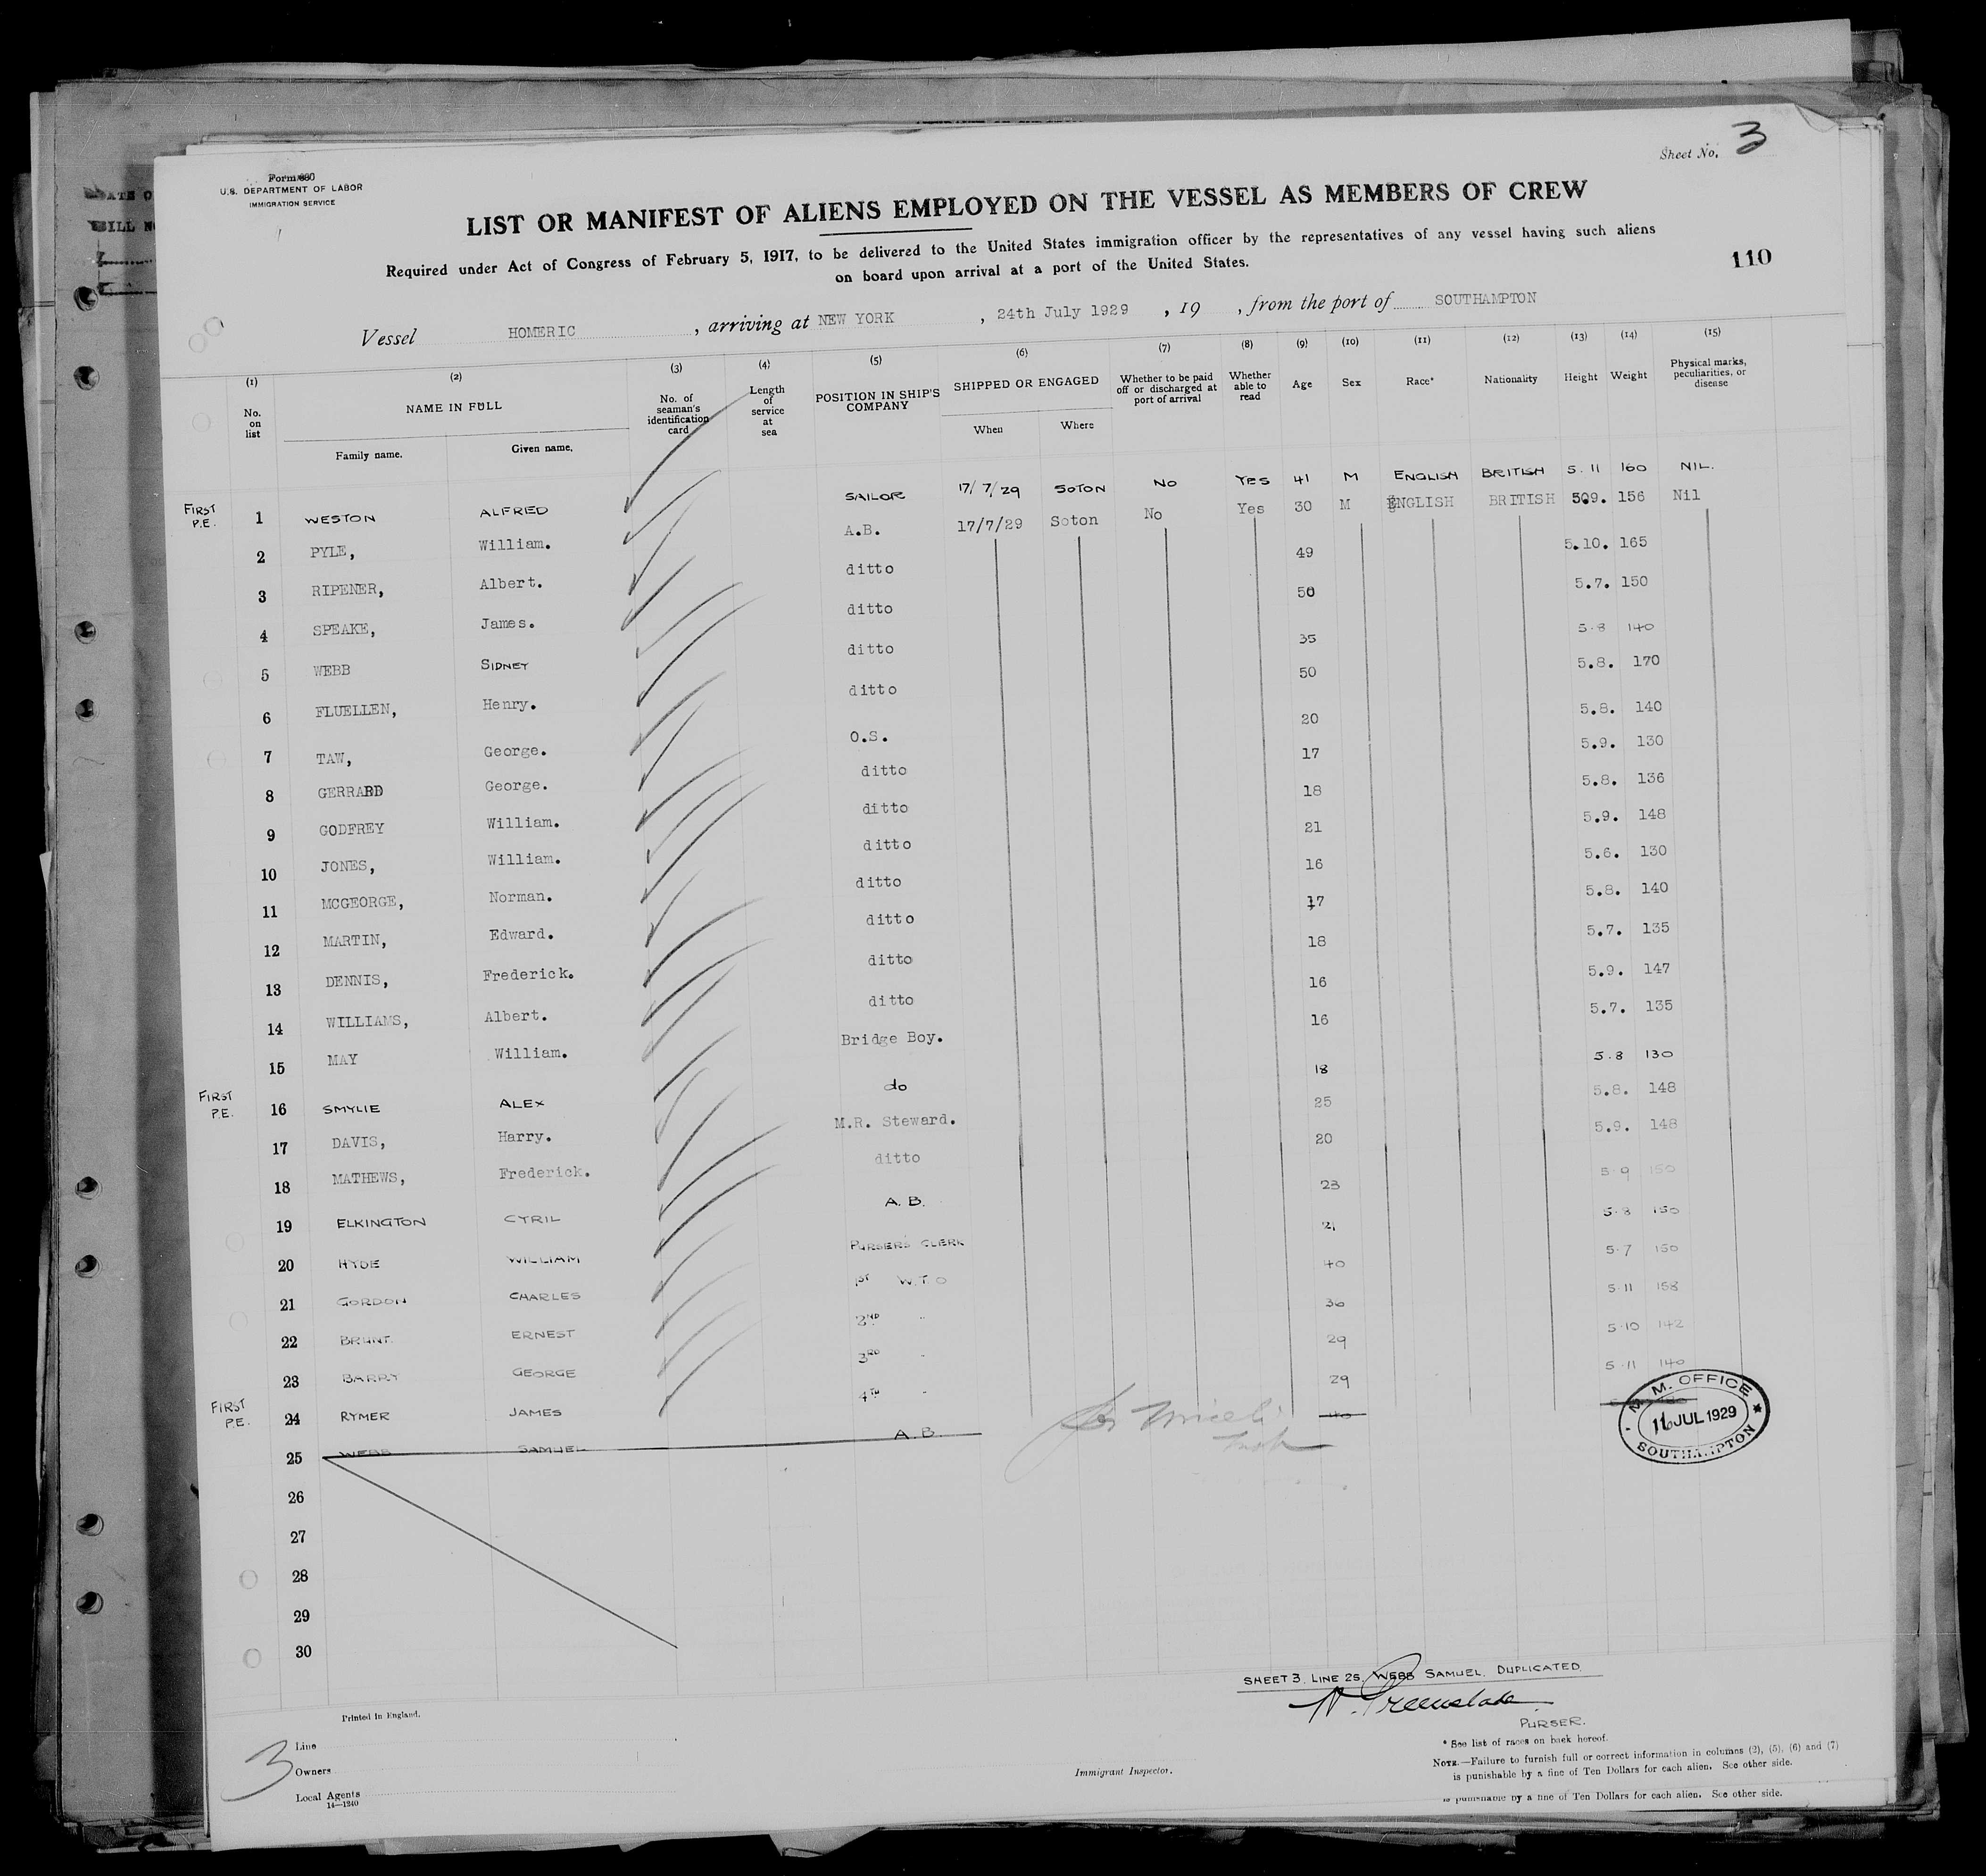 Sheet No. 3
Form 680
U.S. DEPARTMENT OF LABOR
IMMIGRATION SERVICE
LIST OR MANIFEST OF ALIENS EMPLOYED ON THE VESSEL AS MEMBERS OF CREW
Required under Act of Congress of February 5, 1917, to be delivered to the United States immigration officer by the representatives of any vessel having such aliens
on board upon arrival at a port of the United States.
110
Vessel HOMERIC, arriving at NEW YORK, 24th July 1929, 19 , from the port of SOUTHAMPTON
(1) (2) (3) (4) (5) (6) (7) (8) (9) (10) (11) (12) (13) (14) (15)
No. on list NAME IN FULL Family name. Given name. No. of seaman's identification card Length of service at sea POSITION IN SHIP'S COMPANY SHIPPED OR ENGAGED When Where Whether to be paid off or discharged at port of arrival Whether able to read Age Sex Race* Nationality Height Weight Physical marks, peculiarities, or disease
FIRST P.E. 1 WESTON ALFRED SAILOR 17/7/29 SOTON NO YES 41 M ENGLISH BRITISH 5.11 160 NIL.
2 PYLE, William. A.B. 17/7/29 Soton No Yes 30 M ENGLISH BRITISH 509. 156 Nil
3 RIPENER, Albert. ditto 49 5.10. 165
4 SPEAKE, James. ditto 50 5.7. 150
5 WEBB SIDNEY ditto 35 5.8 140
6 FLUELLEN, Henry. ditto 50 5.8. 170
7 TAW, George. O.S. 20 5.8. 140
8 GERRARD George. ditto 17 5.9. 130
9 GODFREY William. ditto 18 5.8. 136
10 JONES, William. ditto 21 5.9. 148
11 MCGEORGE, Norman. ditto 16 5.6. 130
12 MARTIN, Edward. ditto 17 5.8. 140
13 DENNIS, Frederick. ditto 18 5.7. 135
14 WILLIAMS, Albert. ditto 16 5.9. 147
15 MAY William. Bridge Boy. 16 5.7. 135
FIRST P.E. 16 SMYLIE ALEX do 18 5.8 130
17 DAVIS, Harry. M.R. Steward. 25 5.8. 148
18 MATHEWS, Frederick. ditto 20 5.9. 148
19 ELKINGTON CYRIL A.B. 23 5.9 150
20 HYDE WILLIAM PURSER'S CLERK 21 5.8 150
21 GORDON CHARLES 1ST W.T.O 40 5.7 150
22 BRUNT ERNEST 2ND " 36 5.11 158
23 BARRY GEORGE 3RD " 29 5.10 142
FIRST P.E. 24 RYMER JAMES 4TH " 29 5.11 140
25 WEBB SAMUEL A.B. 40
26
27
28
29
30
M.M. OFFICE
16 JUL 1929
SOUTHAMPTON
SHEET 3, LINE 25, WEBB SAMUEL. DUPLICATED.
PURSER.
Printed in England.
3
Line
Owners
Local Agents
14—1240
Immigrant Inspector.
* See list of races on back hereof.
NOTE.—Failure to furnish full or correct information in columns (2), (5), (6) and (7)
is punishable by a fine of Ten Dollars for each alien. See other side.
is punishable by a fine of Ten Dollars for each alien. See other side.